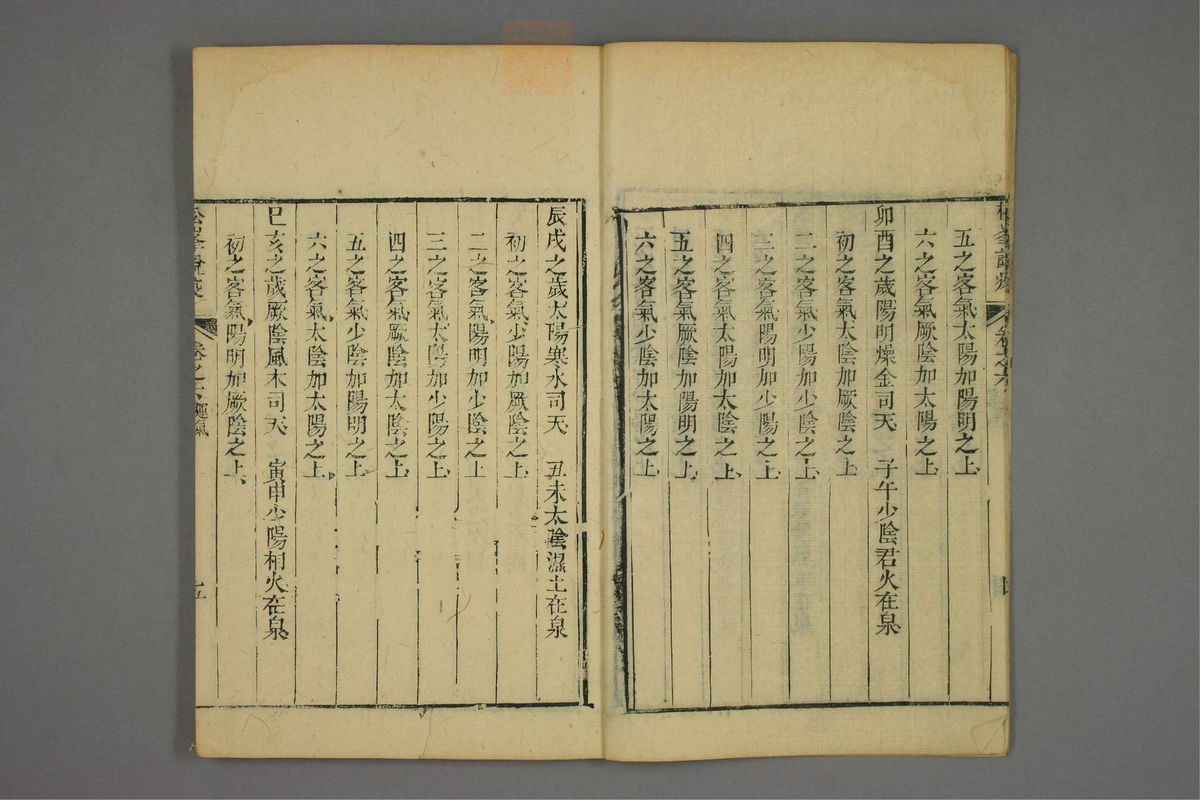 五之客氣太陽加陽明之上
六之客氣厥陰加太陽之上
卯酉之歲陽明燥金司天　子午少陰君火在泉
初之客氣太陰加厥陰之上
二之客氣少陽加少陰之上
三之客氣陽明加少陽之上
四之客氣太陽加太陰之上
五之客氣厥陰加陽明之上
六之客氣少陰加太陽之上
辰戌之歲太陽寒水司天　丑未太陰濕土在泉
初之客氣少陽加厥陰之上
二之客氣陽明加少陰之上
三之客氣太陽加少陽之上
四之客氣厥陰加太陰之上
五之客氣少陰加陽明之上
六之客氣太陰加太陽之上
巳亥之歲厥陰風木司天　寅申少陽相火在泉
初之客氣陽明加厥陰之上
松峯說疫　卷之六　運氣